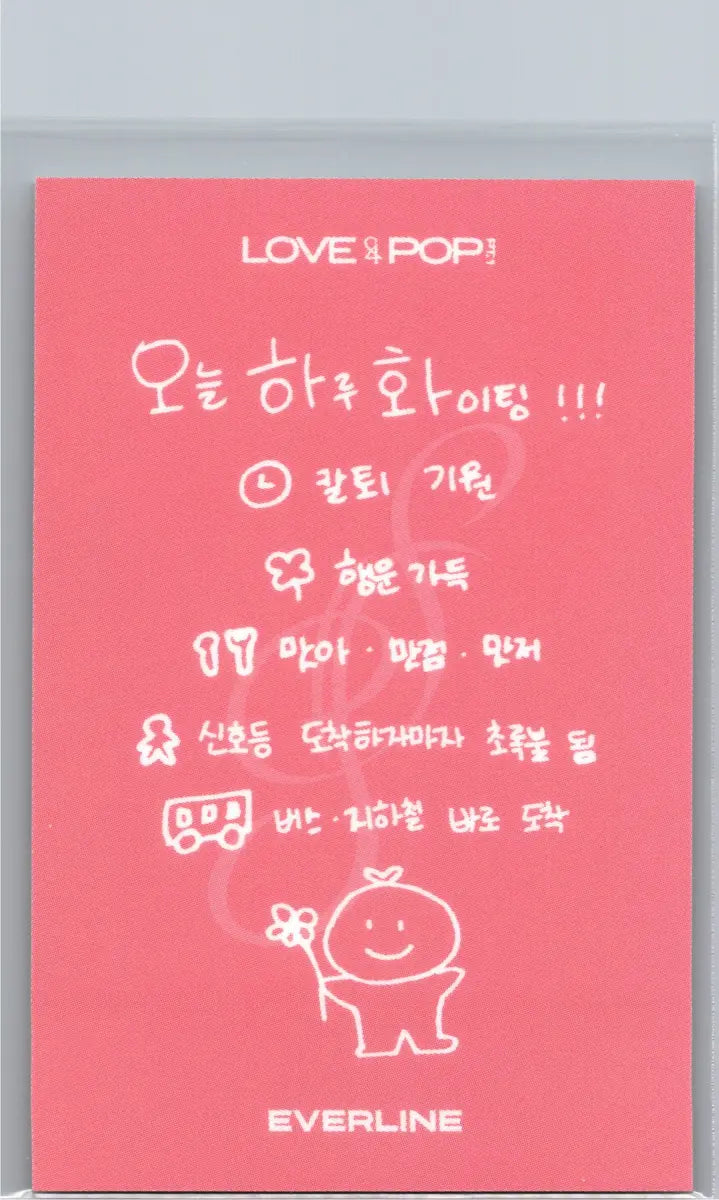 LOVE & POP PT.1
오늘 하루 화이팅 !!!
칼퇴 기원
행운 가득
맛아 · 맛점 · 맛저
신호등 도착하자마자 초록불 됨
버스 · 지하철 바로 도착
EVERLINE